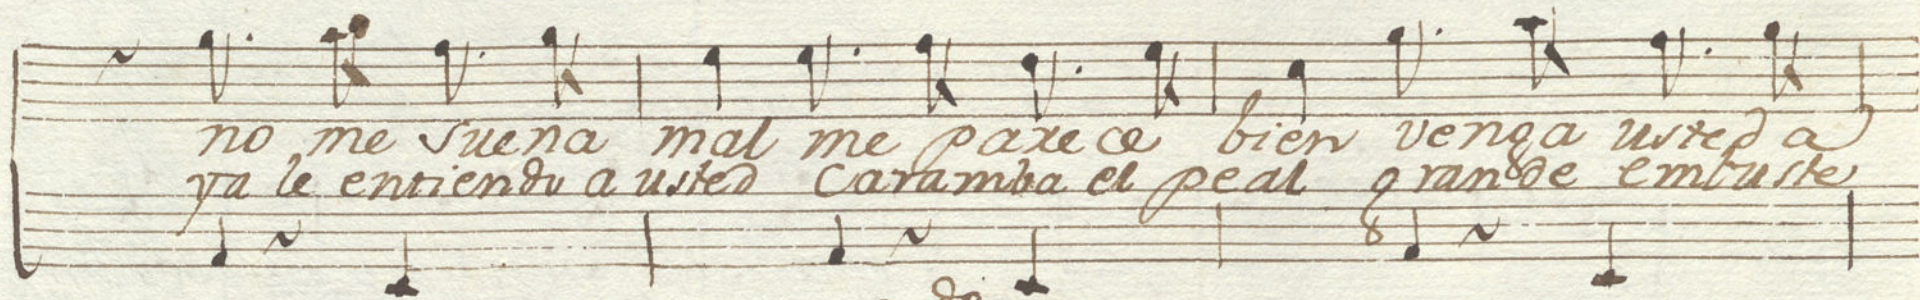 no me suena mal me parece bien venga usted a
ya le entiendo a usted caramba el peal grande embuste
8
do